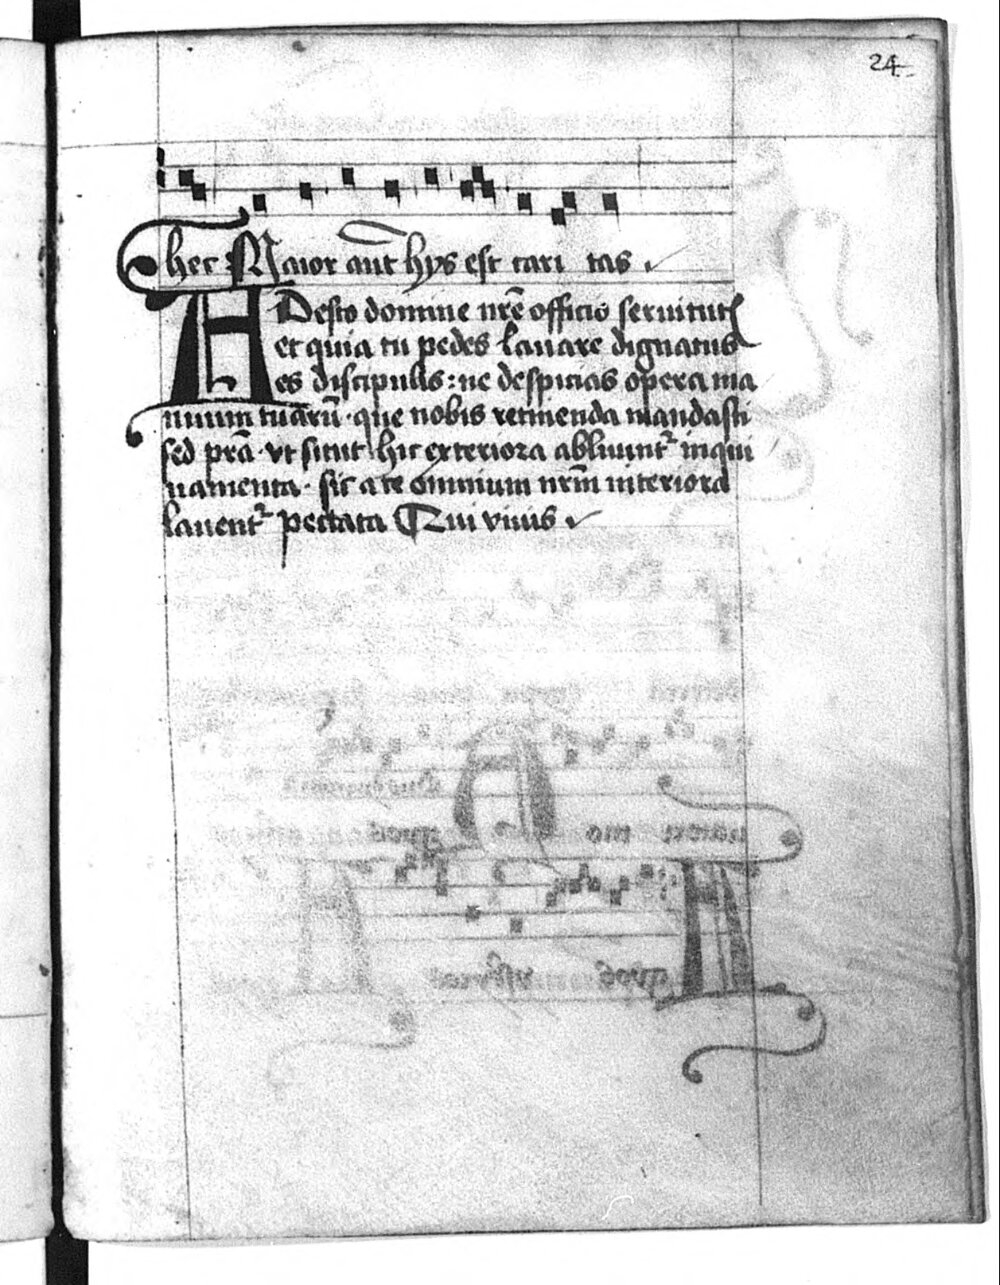 24
hec Maior aut̄ hys est cari tas
ADesto domine nr̄e officio seruitut
et quia tu pedes lauare dignatus
es discipulis : ne despicias opera ma
nuum tuarū · que nobis retinenda mandasti
sed · vt sicut hic exteriora abluunt inqui
namenta · sic a te omnium nr̄m interiora
lauent peccata Qui viuis